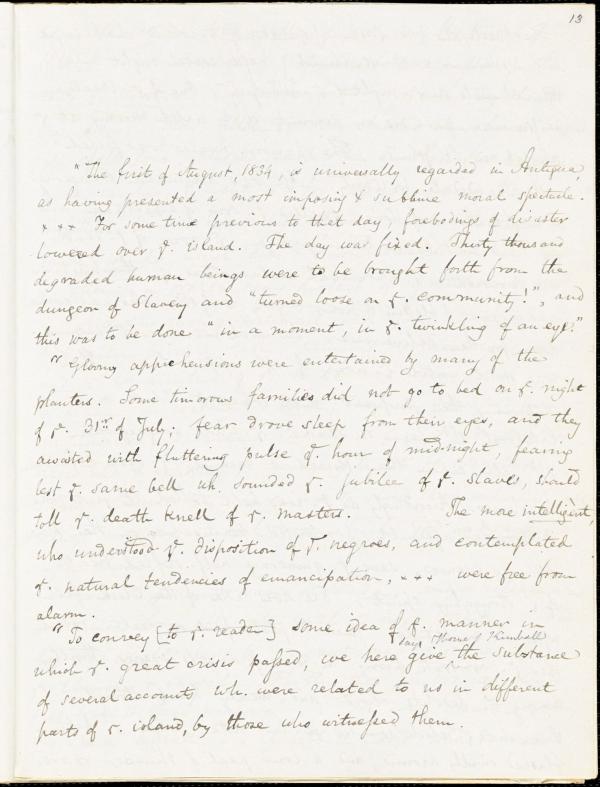 13
"The first of August, 1834, is universally regarded in Antigua,
as having presented a most imposing & sublime moral spectacle.
× × × For some time previous to that day, forebodings of disaster
lowered over ye. island. The day was fixed. Thirty thousand
degraded human beings were to be brought forth from the
dungeon of Slavery and "turned loose on ye. community!", and
this was to be done "in a moment, in ye. twinkling of an eye."
"Gloomy apprehensions were entertained by many of the
planters. Some timorous families did not go to bed on ye. night
of ye. 31st of July; fear drove sleep from their eyes, and they
awaited with fluttering pulse ye. hour of mid-night, fearing
lest ye. same bell wh. sounded ye. jubilee of ye. slaves, should
toll ye. death knell of ye. masters. The more intelligent,
who understood ye. disposition of ye. negroes, and contemplated
ye. natural tendencies of emancipation, × × × were free from
alarm.
"To convey [to ye. reader] some idea of ye. manner in
say Thome & Kimball
which ye. great crisis passed, we here give the substance
of several accounts wh. were related to us in different
parts of ye. island, by those who witnessed them.